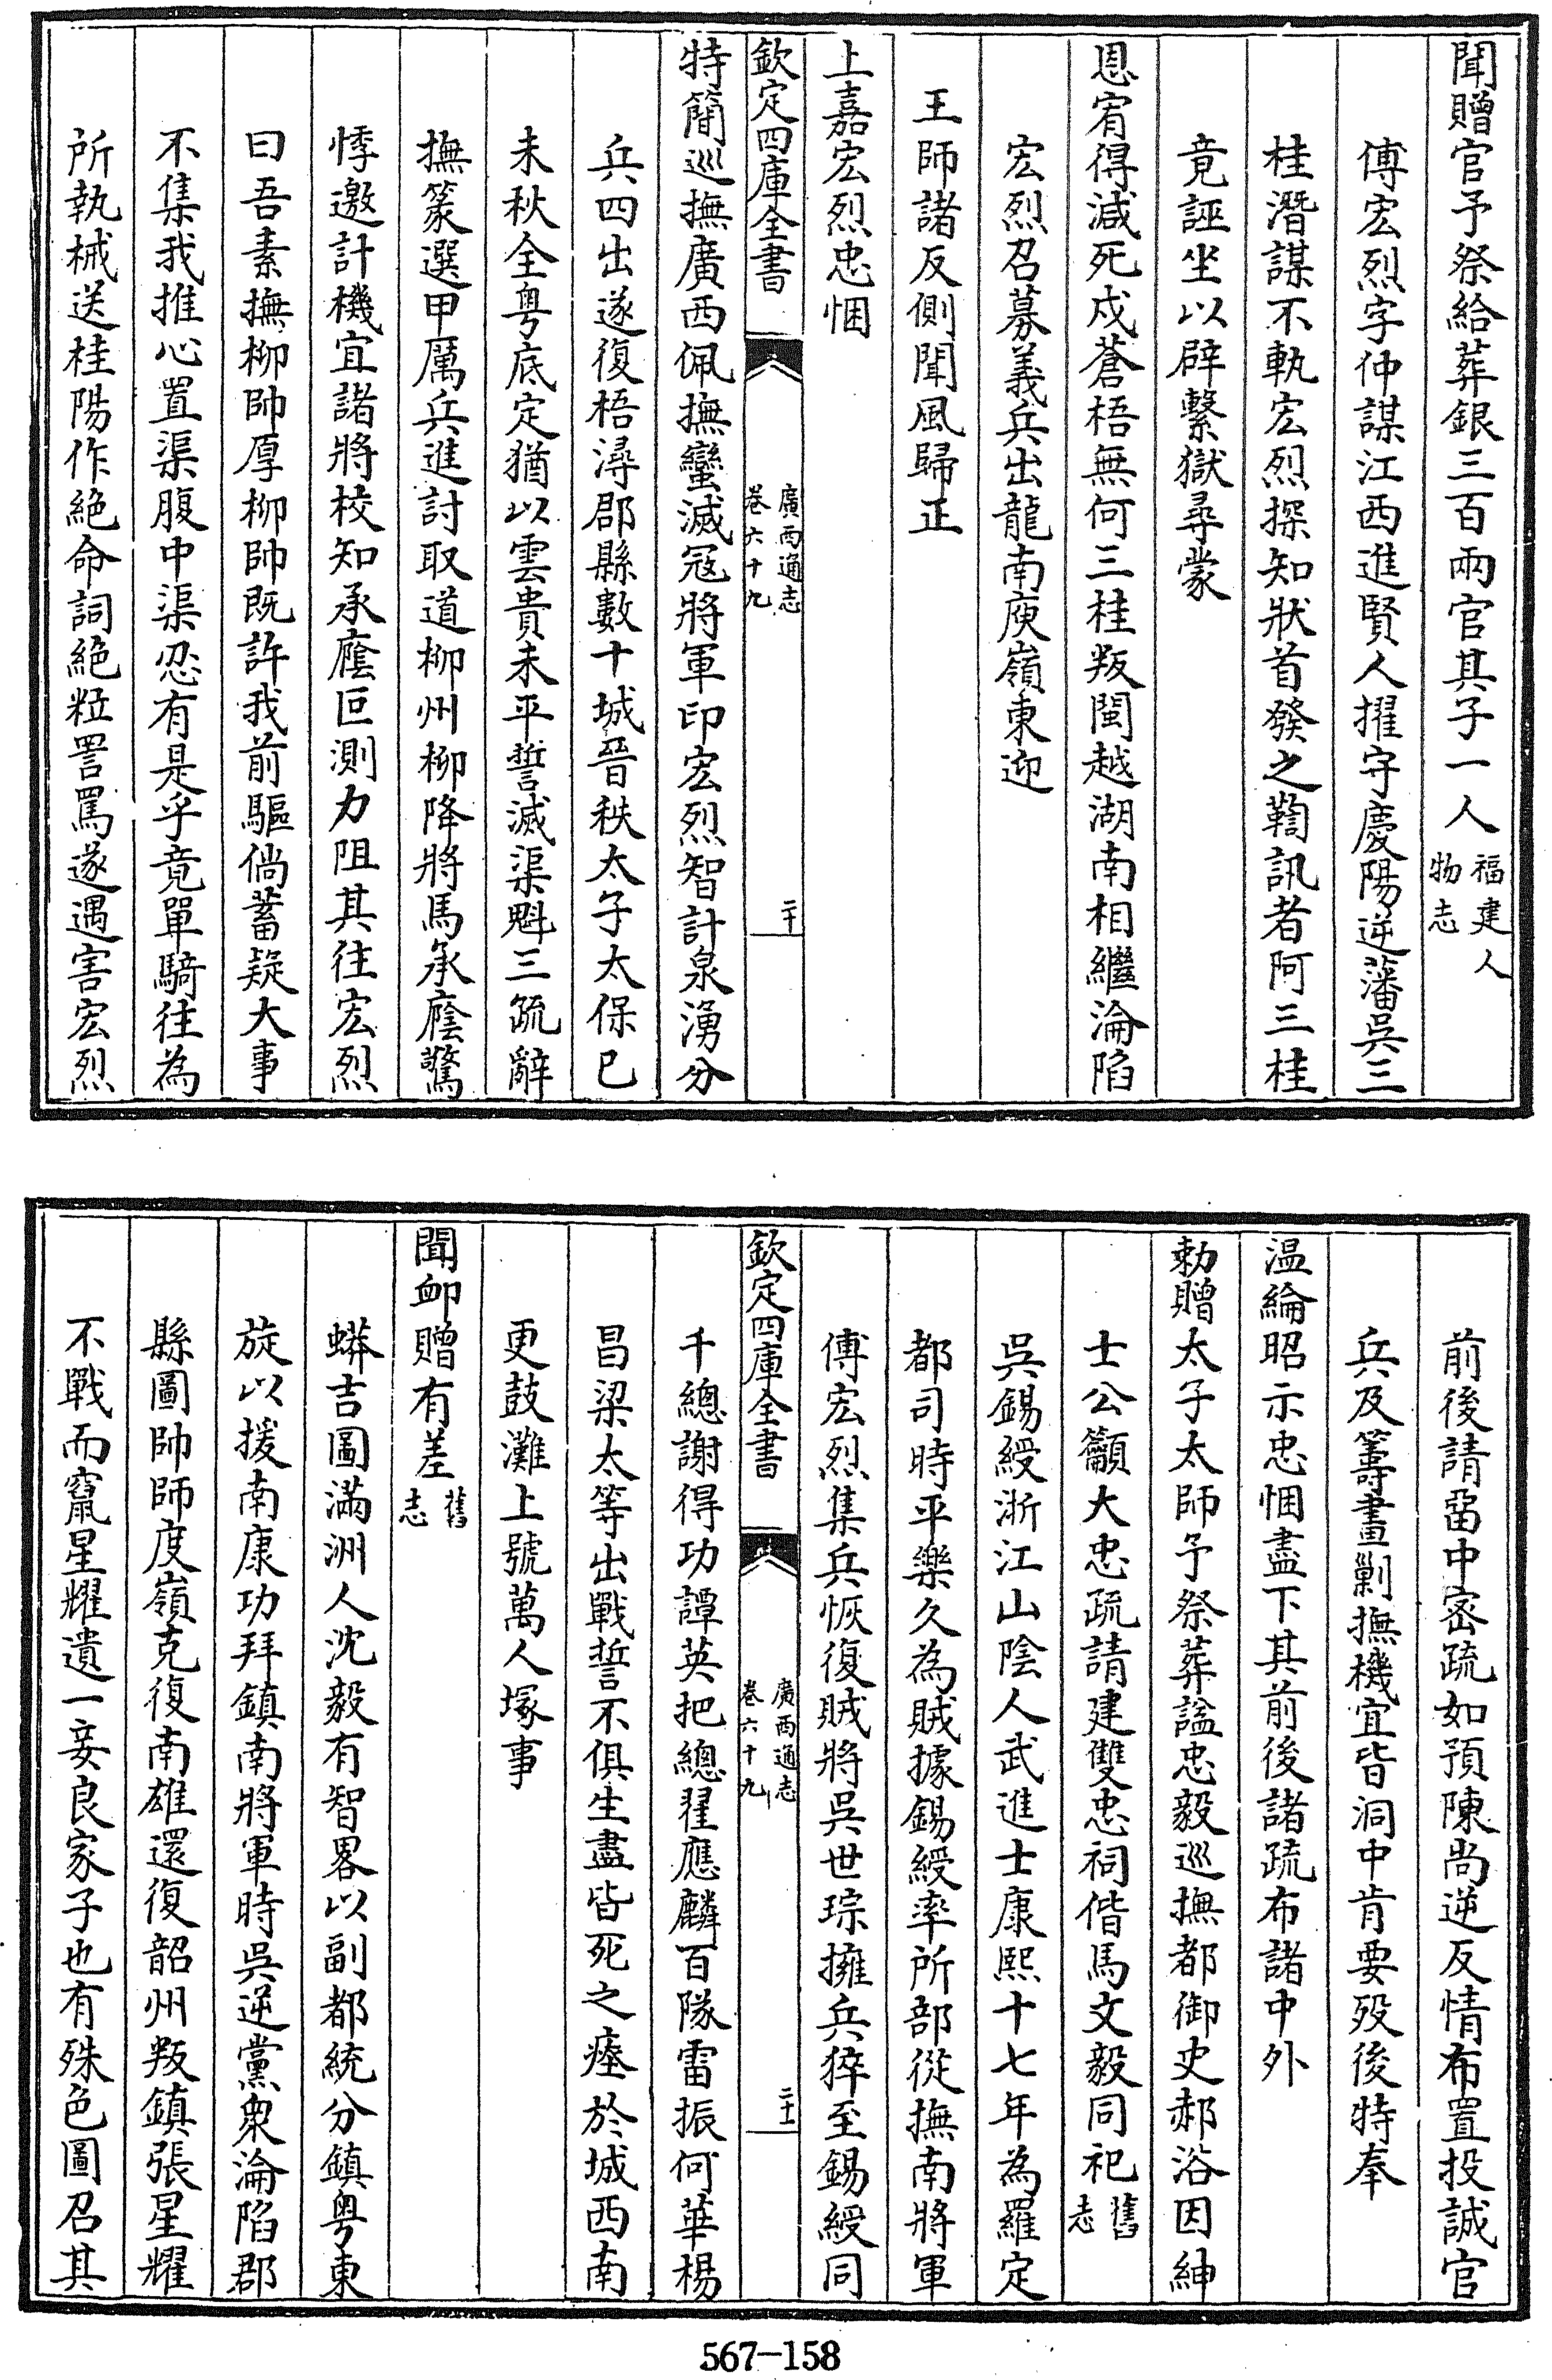 聞贈官予祭給葬銀三百兩官其子一人福建人物志
傅宏烈字仲謀江西進賢人擢守慶陽逆藩吳三
桂潛謀不軌宏烈探知狀首發之鞫訊者阿三桂
竟誣坐以辟繫獄尋蒙
恩宥得減死戍蒼梧無何三桂叛閩越湖南相繼淪陷
宏烈召募義兵出龍南庾嶺東迎
王師諸反側聞風歸正
上嘉宏烈忠悃
欽定四庫全書 廣西通志卷六十九 二十
特簡巡撫廣西佩撫蠻滅寇將軍印宏烈智計泉湧分
兵四出遂復梧潯郡縣數十城晉秩太子太保已
未秋全粵底定猶以雲貴未平誓滅渠魁三疏辭
撫篆選甲厲兵進討取道柳州柳降將馬承廕驚
悸邀計機宜諸將校知承廕叵測力阻其往宏烈
曰吾素撫柳帥厚柳帥既許我前驅倘蓄疑大事
不集我推心置渠腹中渠忍有是乎竟單騎往為
所執械送桂陽作絕命詞絕粒詈罵遂遇害宏烈
前後請留中密疏如預陳尚逆反情布置投誠官
兵及籌畫剿撫機宜皆洞中肯要歿後特奉
溫綸昭示忠悃盡下其前後諸疏布諸中外
勅贈太子太師予祭葬諡忠毅巡撫都御史郝浴因紳
士公籲大忠疏請建雙忠祠偕馬文毅同祀舊志
吳錫綬浙江山陰人武進士康熙十七年為羅定
都司時平樂久為賊據錫綬率所部從撫南將軍
傅宏烈集兵恢復賊將吳世琮擁兵猝至錫綬同
欽定四庫全書 廣西通志卷六十九 二十一
千總謝得功譚英把總翟應麟百隊雷振何華楊
昌梁太等出戰誓不俱生盡皆死之瘞於城西南
更鼓灘上號萬人塚事
聞卹贈有差舊志
蟒吉圖滿洲人沈毅有智畧以副都統分鎮粵東
旋以援南康功拜鎮南將軍時吳逆黨衆淪陷郡
縣圖帥師度嶺克復南雄還復韶州叛鎮張星耀
不戰而竄星耀遺一妾良家子也有殊色圖召其
567-158